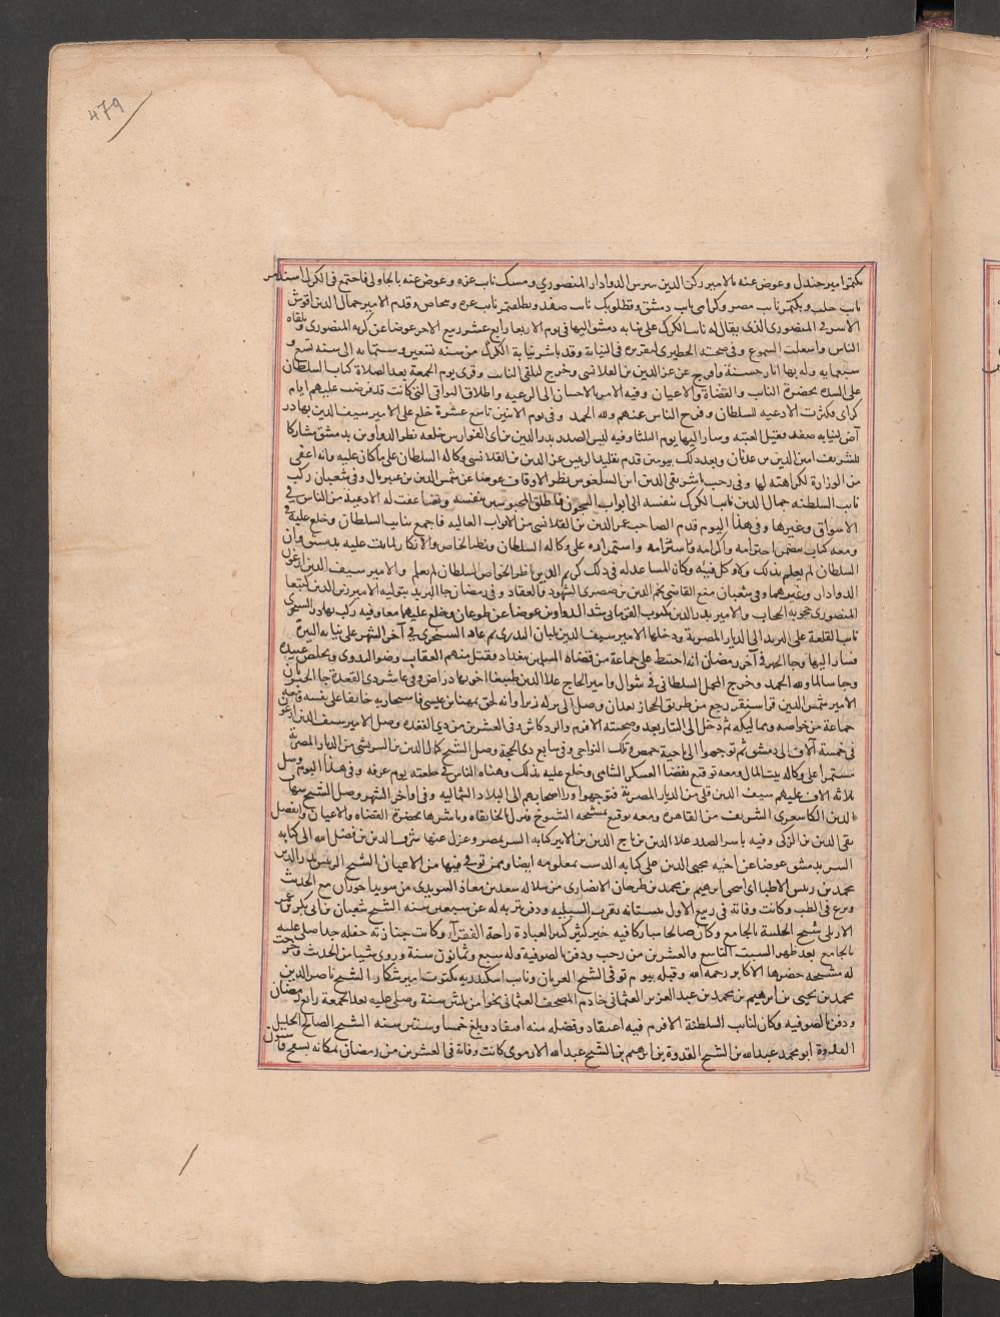 479
بكتمر امير جندار وعوض عنه بالامير ركن الدين بيبرس الدوادار المنصوري ومسك نائب غزه وعوض عنه بالجاولي فاجتمع في الكرك اسندمر
نايب حلب وبكتمر نايب مصر وكراي نايب دمشق وقطلوبك نايب صفد وقطلقتمر نايب غزه وقدم الامير جمال الدين اقوش
الاشرفي المنصوري الذي يقال له نايب الكرك على نيابه دمشق اليها في يوم الاربعا رابع عشر ربيع الاخر عوضا عن كريه المنصوري وتلقاه
الناس واشعلت الشموع وفي صحبته الخطيري لتقريره في النيابة وقد باشر نيابة الكرك من سنه تسعين وستمايه الى سنه تسع و
سبعمايه وله بها اثار حسنة وافرج عن عز الدين بن القلانسي وخرج لتلقي النايب وقرى يوم الجمعة بعد الصلاة كتاب السلطان
على السده بحضرة النايب والقضاة والاعيان وفيه الامر بالاحسان الى الرعيه واطلاق البواقي التي كانت قد فرضت عليهم ايام
كراي فكثرت الادعيه للسلطان وفرح الناس عنهم ولله الحمد وفي يوم الاثنين تاسع عشرة خلع على الامير سيف الدين بهادر
آص لنيابه صفد فقبل العتبه وسار اليها يوم الثلثا وفيه لبس الصدر بدر الدين بن ابي الفوارس خلعه نظر الدواوين بدمشق مشاركا
للشريف امين الدين بن عدنان وبعد ذلك بيومين قدم تقليد الرئيس عز الدين بن القلانسي وكاله السلطان على ما كان عليه وانه اعفي
من الوزارة لكراهته لها وفي رجب باشر تقي الدين ابن السلعوس نظر الاوقاف عوضا عن شمس الدين بن وفي شعبان ركب
نايب السلطنه جمال الدين نايب الكرك بنفسه الى ابواب السجون فاطلق المحبوسين بنفسه وتضاعفت له الادعيه من الناس في
الاسواق وغيرها وفي هذا اليوم قدم الصاحب عز الدين بن القلانسي من الابواب العاليه فاجتمع بنايب السلطان وخلع عليه و
ومعه كتاب يتضمن احترامه واكرامه واستمراره على وكاله السلطان ونظر الخاص والانكار لما ثبت عليه بدمشق وان
السلطان لم يعلم بذلك ولا وكل فيه وكان المساعد له في ذلك كريم الدين ناظر الخواص السلطان والامير سيف الدين ارغون
الدوادار وغيرهما وفي شعبان منع القاضي نجم الدين بن صصرى الشهود والعقاد وفي رمضان جا البريد بتوليه الامير زين الدين كتبغا
المنصوري حجوبية الحجاب والامير بدر الدين بكتوب القرماني شد الدواوين عوضا عن طوغان وخلع عليهما معا وفيه ركب بهادر السنجري
نايب القلعة على البريد الى الديار المصرية ودخلها الامير سيف الدين بلبان البدري ثم عاد السنجري في آخر الشهر على نيابه البيرة
فسار اليها وجا الخبر في آخر رمضان انه احتيط على جماعة من قضاه المسلمين ببغداد وقتل منهم العقاب وتخلص عبيده
وجا سالما ولله الحمد وخرج المحمل السلطاني في شوال وامير الحاج علا الدين طيبغا اخو بهادر اص وفي عاشر ذي القعدة جا الخبر بان
الامير شمس الدين قراسنقر رجع من طريق الحجاز بعد ان وصل الى بركه زيرا وانه لحق بمهنا بن عيسى فاستجار به خايفا على نفسه ومعه
جماعة من خواصه ومماليكه ثم دخل الى التتار بعد وصحبته الافرم والزردكاش وفي العشرين من ذي القعده وصل الامير سيف الدين ارغون
في خمسة آلاف الى دمشق ثم توجهوا الى ناحية حمص وتلك النواحي وفي سابع ذي الحجة وصل الشيخ كمال الدين بن الشريشي من الديار المصرية
مستمرا على وكاله بيت المال ومعه توقيع بقضا العسكر الشامي وخلع عليه بذلك وهناه الناس في خلعته يوم عرفه وفي هذا اليوم وصل
ثلاثه الاف عليهم سيف الدين قلي من الديار المصرية فتوجهوا ورا اصحابهم الى البلاد الشماليه وفي اواخر الشهر وصل الشيخ شهاب
الدين الكاشغري الشريف من القاهره ومعه توقيع بمشيخه الشيوخ فنزل الخانقاه وباشرها بحضرة القضاه والاعيان وانفصل
تقي الدين بن الزكي وفيه باشر الصدر علا الدين بن تاج الدين بن الاثير كتابه السر بمصر وعزل عنها شرف الدين بن فضل الله الى كتابه
السر بدمشق عوضا عن اخيه محيي الدين على كتابه الدست بمعلومه ايضا وممن توفي فيها من الاعيان الشيخ الرئيس بدر الدين
محمد بن رئيس الاطبا ابي اسحق ابرهيم بن محمد بن طرخان الانصاري من سلاله سعد بن معاذ السويدي من سويدا حوران سمع الحديث
وبرع في الطب وكانت وفاته في ربيع الاول ببستانه بقرب الشبليه ودفن تربه له عن سبعين سنه الشيخ شعبان بن ابي بكر بن عمر
الاربلي شيخ الحلبية بالجامع وكان صالحا مباركا فيه خير كثير كثير العبادة راحة الفقرا وكانت جنازته حفله جدا صلي عليه
بالجامع بعد ظهر السبت التاسع والعشرين من رجب ودفن بالصوفيه وله سبع وثمانون سنة وروى شيا من الحديث وخرجت
له مشيخه حضرها الاكابر رحمه الله وقبله بيوم توفي الشيخ العريان ونايب اسكندريه بكتوت اميرشكار الشيخ ناصر الدين
محمد بن يحيى بن ابرهيم بن محمد بن عبد العزيز العثماني خادم المصحف العثماني نحوا من ثلثين سنة وصلي عليه بعد الجمعة رابع رمضان
ودفن بالصوفيه وكان لنايب السلطنة الافرم فيه اعتقاد وفضله منه افتقاد وبلغ خمسا وستين سنه الشيخ الصالح الجليل
القدوة ابو محمد عبد الله بن الشيخ القدوة ابرهيم بن الشيخ عبد الله الارموي كانت وفاته في العشرين من رمضان بمكانه بسفح قاسيون